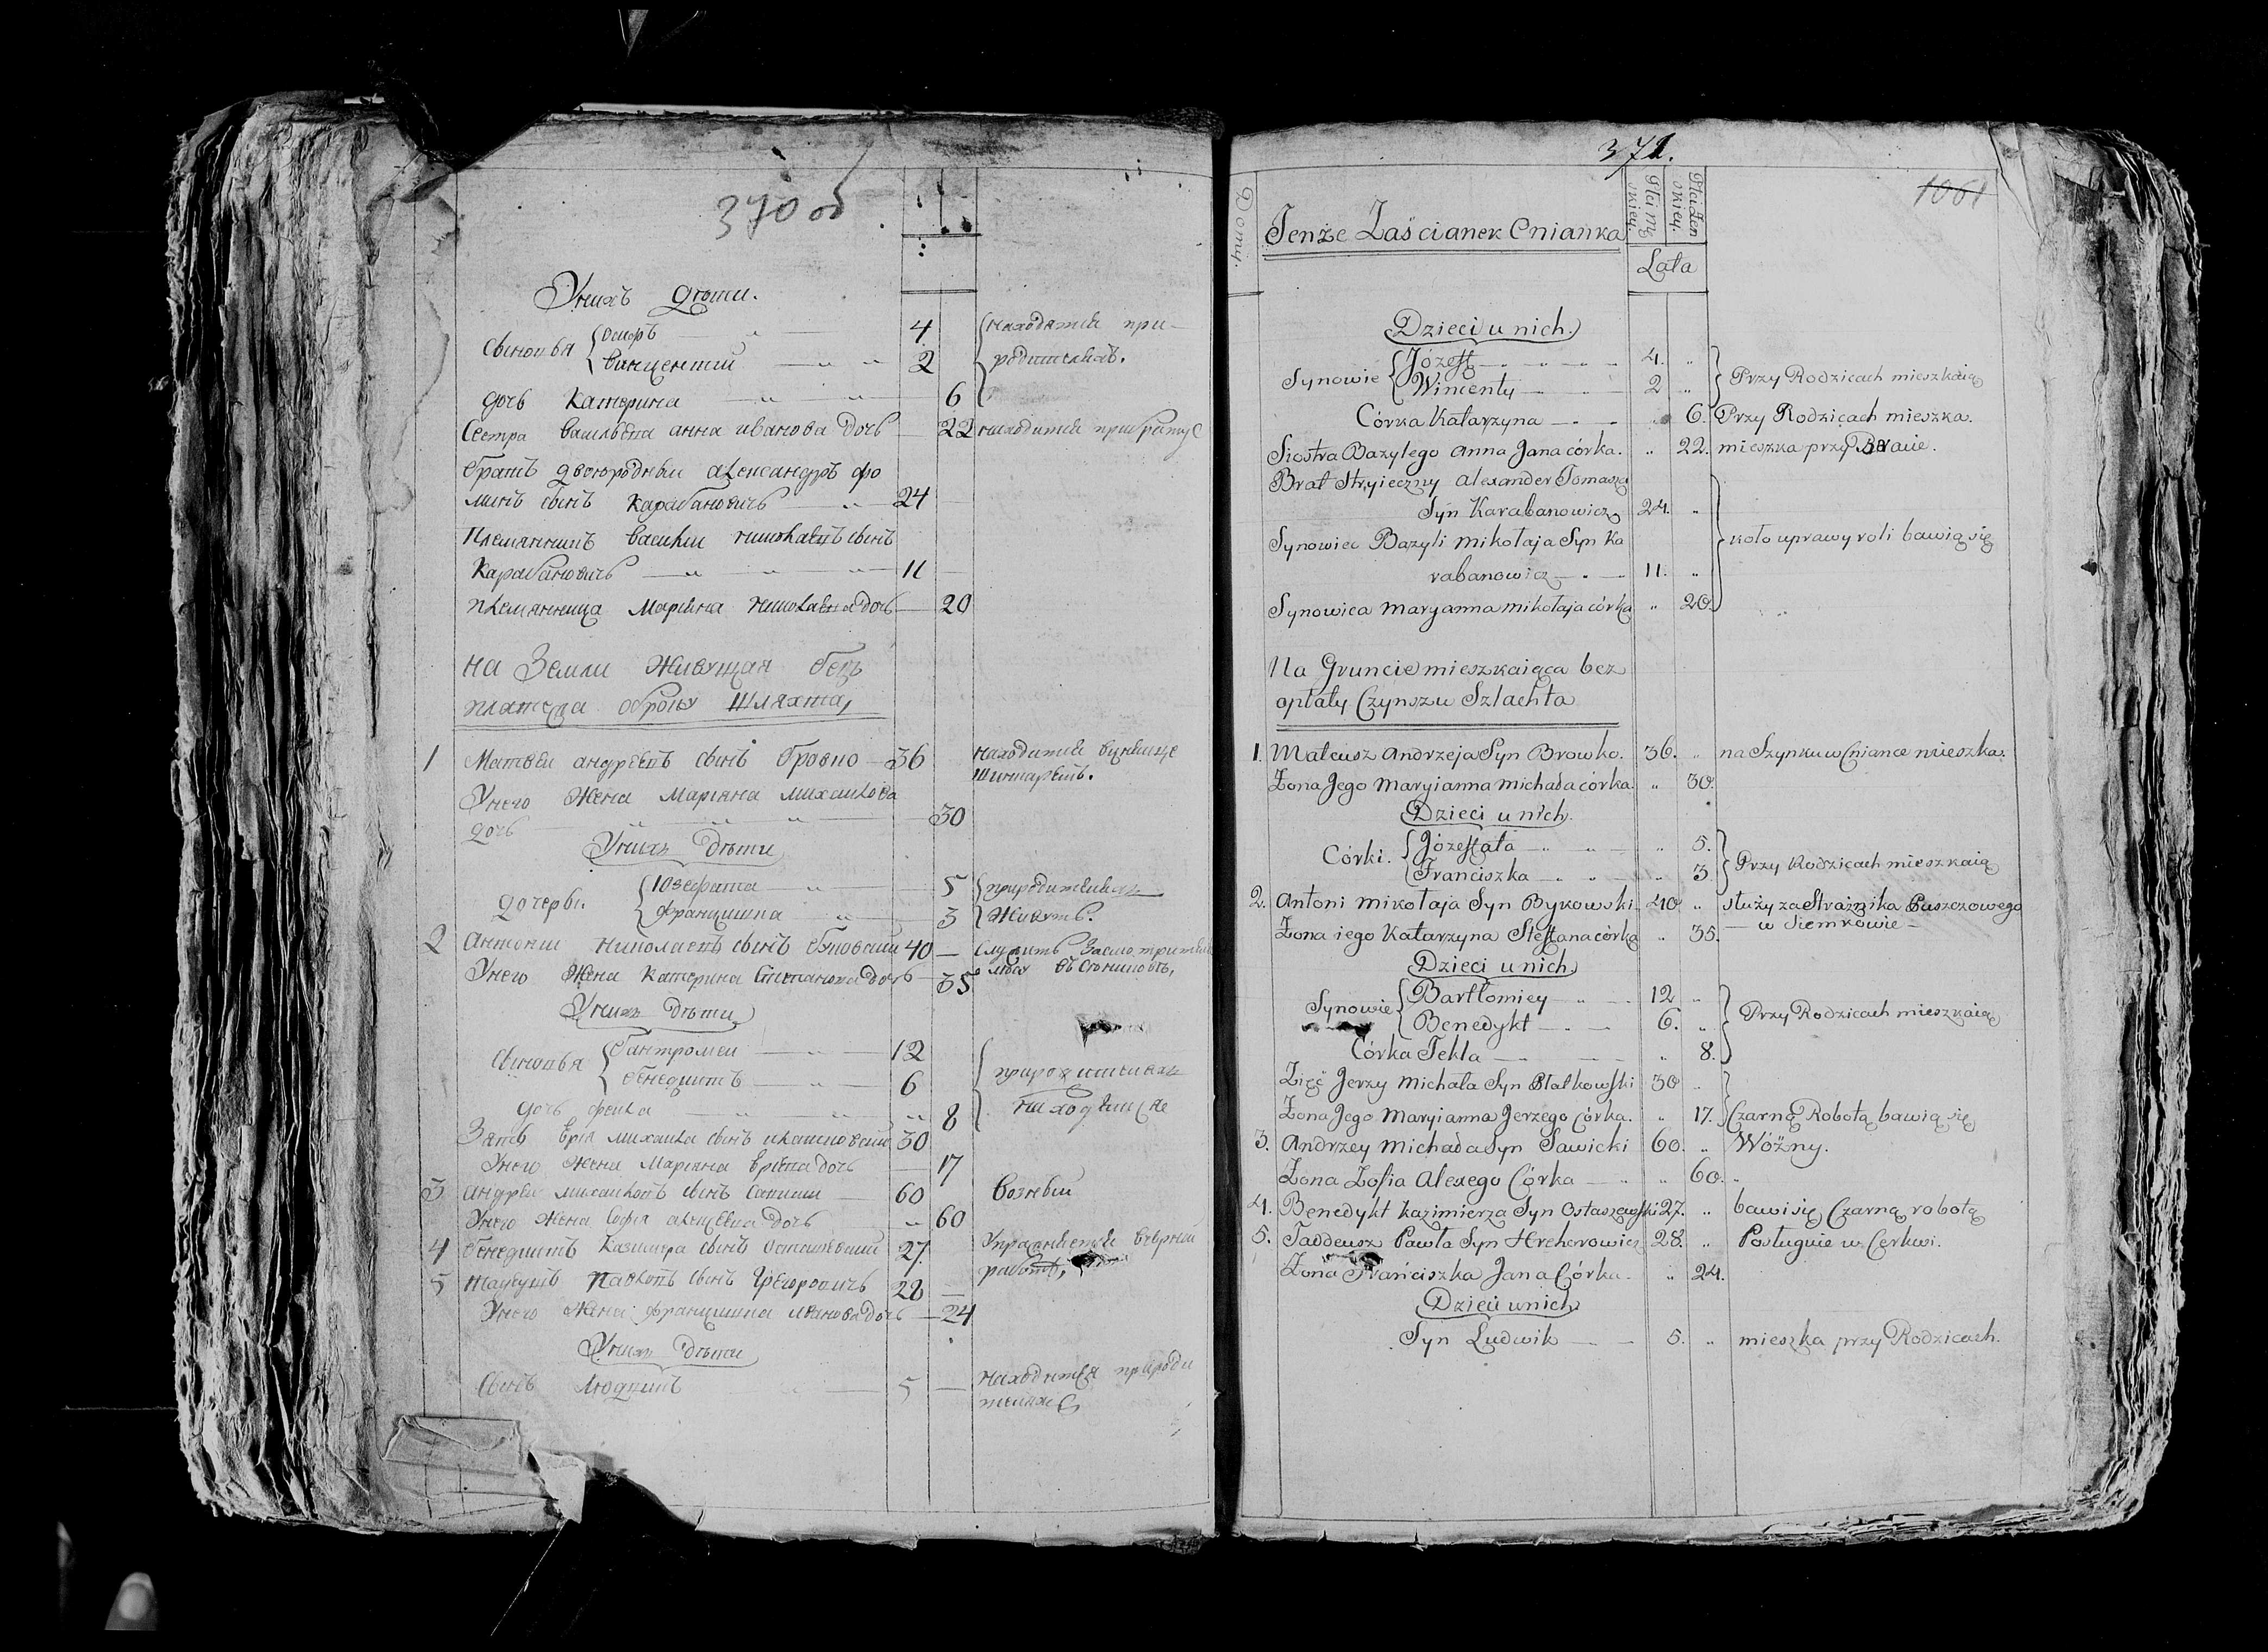 370 об
Унихъ дѣти.
Сыновья
Осифъ 4
Винцентий 2
находятся при
родителяхъ.
дочь Катерина 6
Сестра Васильева Анна Иванова дочь 22 находится прибрату
братъ двоюродный Александръ Фо
минъ сынъ Карабановичь 24
Племянникъ Василий Николаевъ сынъ
Карабановичь 11
племянница Марьяна Николаева дочь 20
на Земли Живущая безъ
платежа оброку Шляхта,
1 Матвей Андреевъ сынъ Бровко 36 находится
Унего Жена Марьяна Михайлова
дочь 30
Унихъ дѣти
дочери
Юзефата 5
Францишка 3
породителяхъ
Живутъ.
2 Антоний Николаевъ сынъ 40 Служитъ
Унего Жена Катерина Степанова дочь 35
Унихъ дѣти
Сыновья
Бантромей 12
Бенедиктъ 6
дочь Фекла 8
Зять Михайла сынъ 30
Унего Жена Марьяна дочь 17
3 Андрей Михайловъ сынъ Савицки 60 Возный
Унего Жена Софія Алексеева дочь 60
4 Бенедиктъ Казимира сынъ 27
работѣ,
5 Павловъ сынъ Грегоровичъ 28
Унего Жена Францишка Иванова дочь 24
Унихъ дѣти
Сынъ Людвикъ 5 находится природи
теляхъ
371.
1061
Domy.
Tenże Zaścianek Cnianka
Męzkiey.
Lata
Dzieci u nich.
Synowie
Józeff 4. "
Wincenty 2 "
Przy Rodzicach mieszkaią
Córka Katarzyna " 6. Przy Rodzicach mieszka.
Siostra Bazylego Anna Jana córka. " 22. mieszka przy Bracie.
Brat Stryieczny Alexander Tomasza
Syn Karabanowicz 24. "
Synowiec Bazyli Mikołaja Syn Ka
rabanowicz 11. "
koło uprawy roli bawią się
Synowica Maryanna Mikołaja córka " 20.
Na Gruncie mieszkaiąca bez
opłaty Czynszu Szlachta
1. Mateusz Andrzeja Syn Browko. 36. " na Szynku w Cniance mieszka.
Żona Jego Maryianna Michała córka. " 30.
Dzieci u nich.
Córki.
Józeffata " 5.
Franciszka " 3.
Przy Rodzicach mieszkaią
2. Antoni Mikołaja Syn Bykowski 40 " służy za Strażnika Puszczowego
w Siemkowie
Żona iego Katarzyna Steffana córka " 35.
Dzieci u nich
Synowie
Bartłomiey 12 "
Benedykt 6. "
Córka Tekla " 8.
Przy Rodzicach mieszkaią
Zięć Jerzy Michała Syn 30 "
Żona Jego Maryianna Jerzego Córka. " 17. Czarną Robotą bawią się
3. Andrzey Michała Syn Sawicki 60. " Wóźny.
Żona Zofia Alexego Córka " 60.
4. Benedykt Kazimierza Syn Ostaszewski 27. " bawi się Czarną robotą
5. Taddeusz Pawła Syn Hrehorowicz 28. " Posługuie w Cerkwi.
Żona Franciszka Jana Córka. " 24.
Dzieci u nich
Syn Ludwik 5. " mieszka przy Rodzicach.